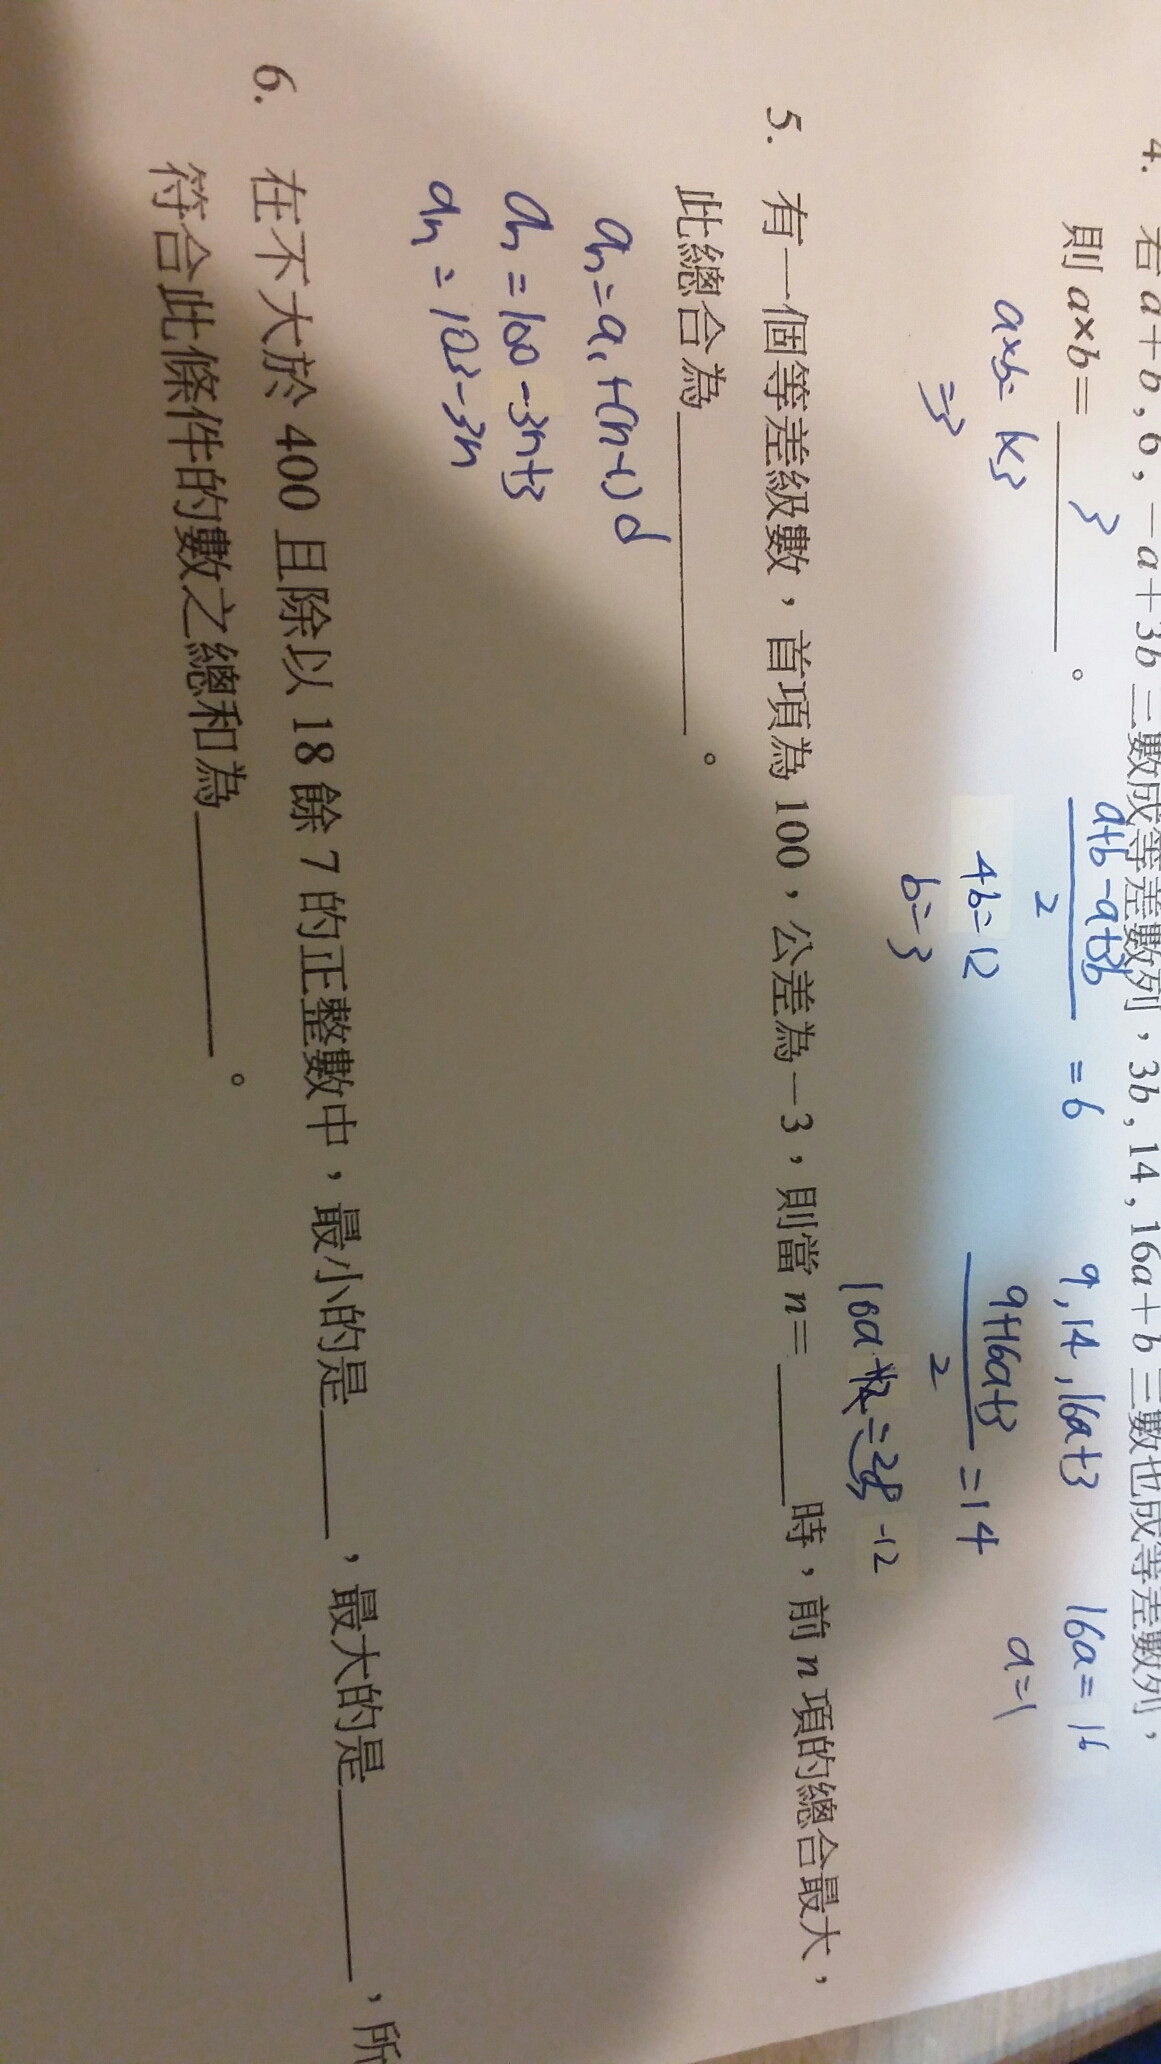 4. 若 a+b, 6, −a+3b 三數成等差數列，3b, 14, 16a+b 三數也成等差數列，
則 a×b= 3 。
a+b-a+3b
2
=6
4b=12
b=3
9,14,16a+3
9+16a+3
2
=14
16a+12=28-12
16a=16
a=1
a×b=1×3
=3
5. 有一個等差級數，首項為 100，公差為−3，則當 n=____時，前 n 項的總合最大，
此總合為________。
an=a1+(n-1)d
an=100-3n+3
an=103-3n
6. 在不大於 400 且除以 18 餘 7 的正整數中，最小的是____，最大的是____，所
符合此條件的數之總和為____。